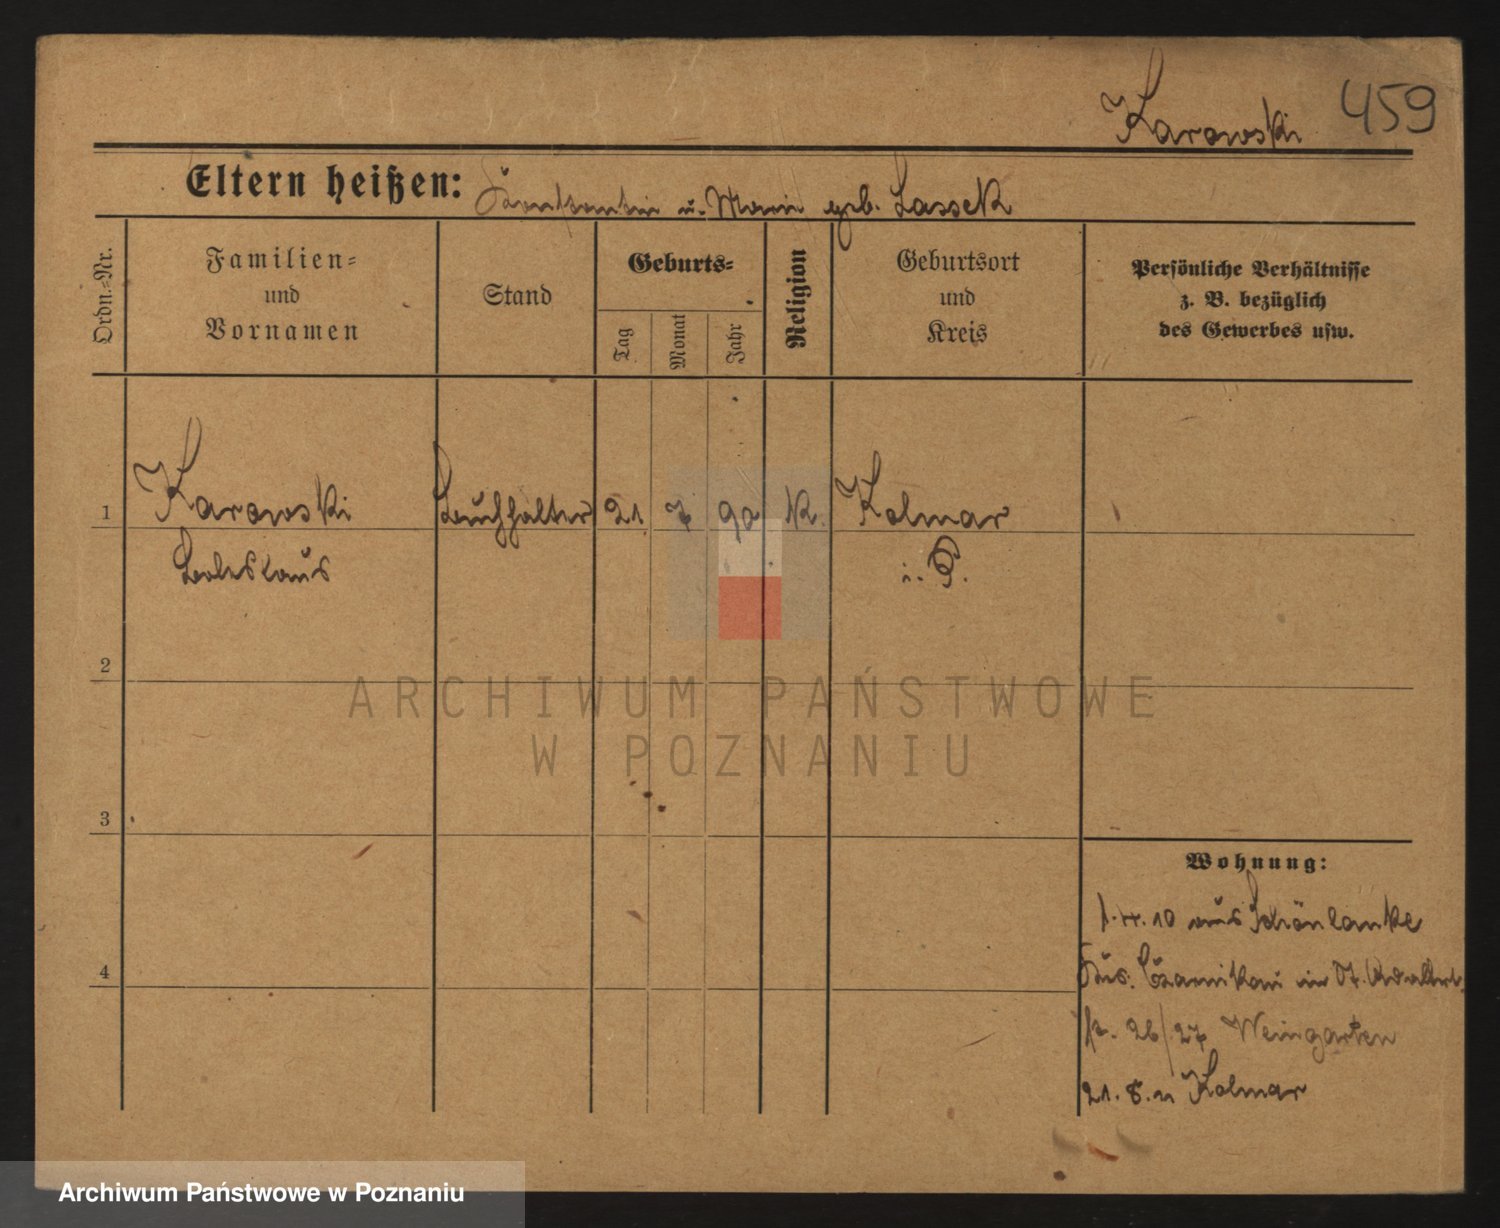 Karowski 459
Eltern heißen: Konstantin u. Marie geb. Lasseck
Ordn.-Nr.
Familien-
und
Vornamen
Stand
Geburts-
Tag
Monat
Jahr
Religion
Geburtsort
und
Kreis
Persönliche Verhältnisse
z. B. bezüglich
des Gewerbes usw.
1 Karowski Buchhalter 21 7 90 K. Kolmar
Boleslaus i. P.
2
3
4
Wohnung:
1.4.10 aus Schönlanke
Czarnikau St.
26/27 Weingarten
21. 8. 11 Kolmar
ARCHIWUM PAŃSTWOWE
W POZNANIU
Archiwum Państwowe w Poznaniu